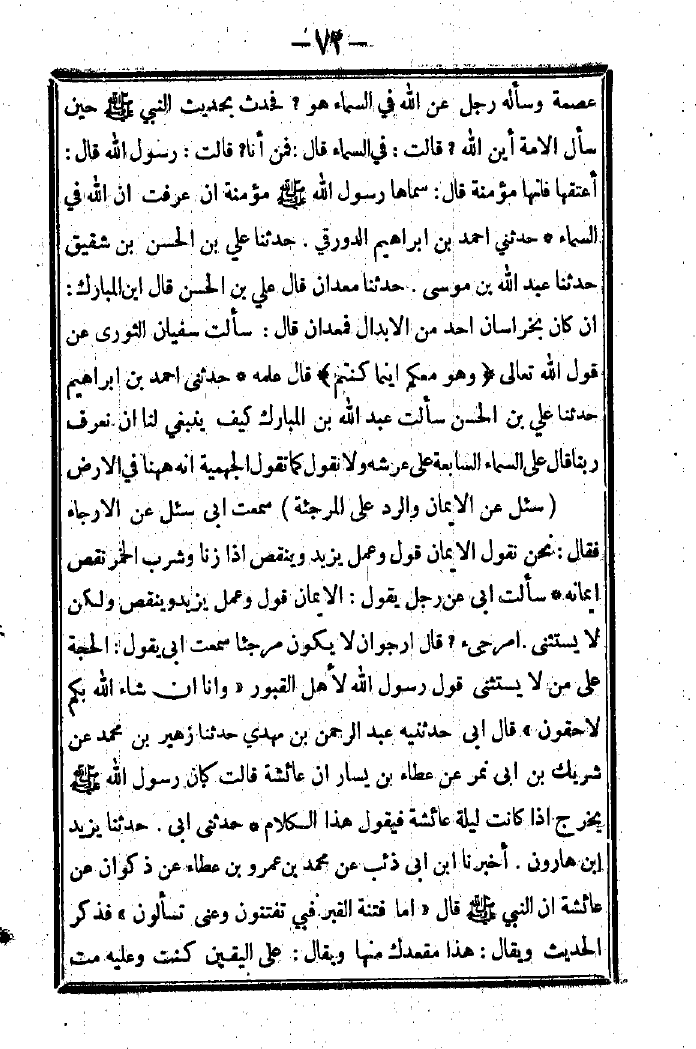 — ٧٢ —
عصمة وسأله رجل عن الله في السماء هو ? فحدث بحديث النبي ﷺ حين
سأل الامة أين الله ? قالت : في السماء قال : فمن أنا? قالت : رسول الله قال :
أعتقها فانها مؤمنة قال : سماها رسول الله ﷺ مؤمنة ان عرفت ان الله في
السماء * حدثني احمد بن ابراهيم الدورقي . حدثنا علي بن الحسن بن شقيق
حدثنا عبد الله بن موسى . حدثنا معدان قال علي بن الحسن قال ابن المبارك :
ان كان بخراسان احد من الابدال فمعدان قال : سألت سفيان الثورى عن
قول الله تعالى ﴿ وهو معكم اينما كنتم ﴾ قال علمه * حدثني احمد بن ابراهيم
حدثنا علي بن الحسن سألت عبد الله بن المبارك كيف ينبغي لنا ان نعرف
ربنا قال على السماء السابعة على عرشه ولا نقول كما تقول الجهمية انه ههنا في الارض
( سئل عن الايمان والرد على المرجئة ) سمعت ابى سئل عن الارجاء
فقال : نحن نقول الايمان قول وعمل يزيد وينقص اذا زنا وشرب الخمر نقص
ايمانه * سألت ابى عن رجل يقول : الايمان قول وعمل يزيد وينقص ولكن
لا يستثنى . امرجىء ? قال ارجوان لا يكون مرجئا سمعت ابى يقول : الحجة
على من لا يستثنى قول رسول الله لأهل القبور « وانا ان شاء الله بكم
لاحقون » قال ابى حدثنيه عبد الرحمن بن مهدي حدثنا زهير بن محمد عن
شريك بن ابى نمر عن عطاء بن يسار ان عائشة قالت كان رسول الله ﷺ
يخرج اذا كانت ليلة عائشة فيقول هذا الكلام * حدثنى ابى . حدثنا يزيد
ابن هارون . أخبرنا ابن ابى ذئب عن محمد بن عمرو بن عطاء عن ذكوان عن
عائشة ان النبي ﷺ قال « اما فتنة القبر فبي تفتنون وعنى تسألون » فذكر
الحديث ويقال : هذا مقعدك منها ويقال : على اليقين كنت وعليه مت